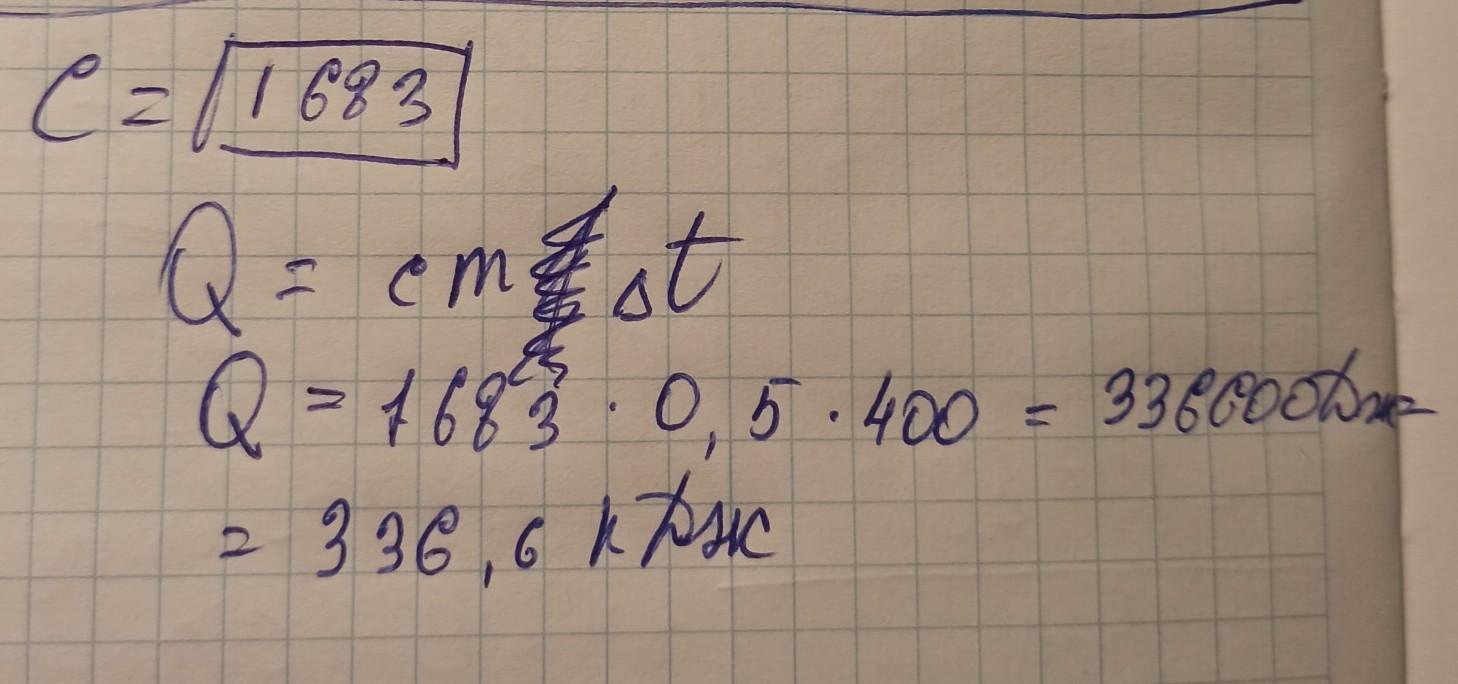 C = 1683
Q = cm Δt
Q = 1683 · 0,5 · 400 = 336600Дж=
= 336,6 кДж